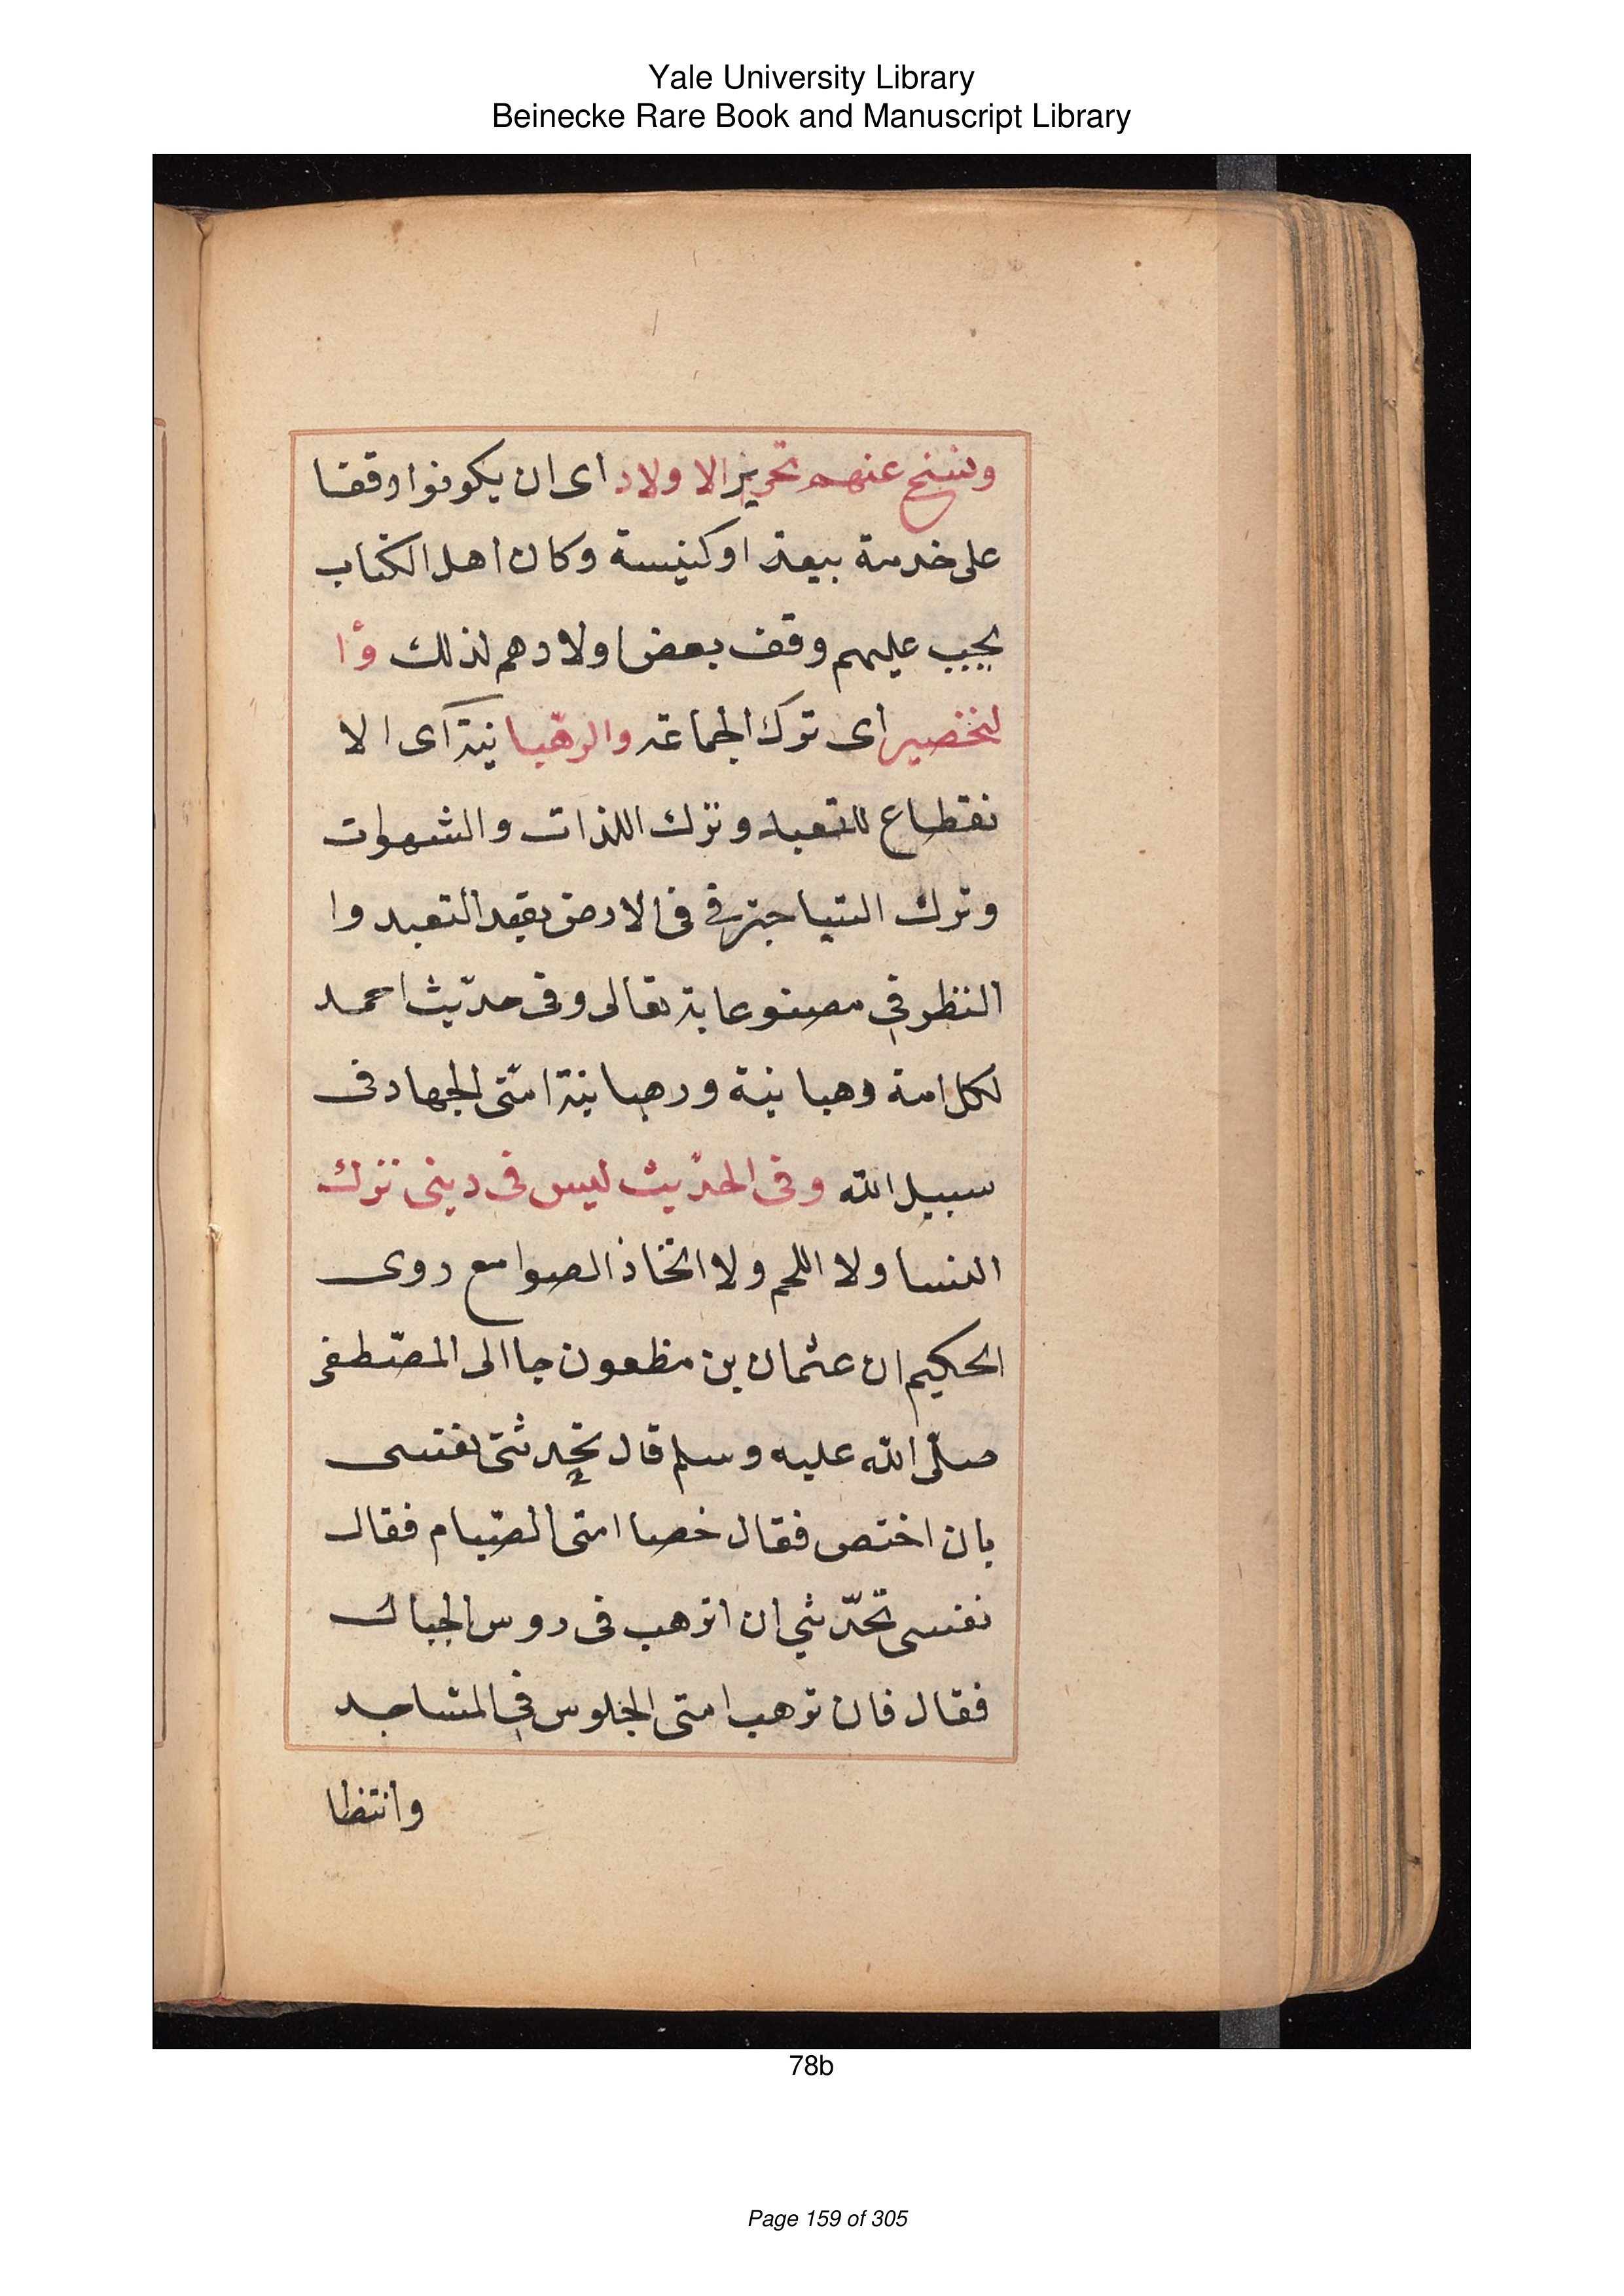 Yale University Library
Beinecke Rare Book and Manuscript Library
ونسخ عنهم تحرير الاولاد اى ان يكونوا وقفا
على خدمة بيعة او كنيسة وكان اهل الكتاب
يجب عليهم وقف بعض اولادهم لذلك وا
لتخصير اى ترك الجماعة والرهبا نية اى الا
نقطاع للتعبد وترك اللذات والشهوات
وترك فى الارض بقيد التعبد وا
النظر فى مصنوعاته تعالى وفى حديث احمد
لكل امة رهبا نية ورهبا نية امتى الجهاد فى
سبيل الله وفى الحديث ليس فى دينى ترك
النسا ولا اللحم ولا اتخاذ الصوامع روى
الحكيم ان عثمان بن مظعون جا الى المصطفى
صلى الله عليه وسلم قال تحدثنى نفسى
بان اختص فقال خصا امتى الصيام فقال
نفسى تحدثني ان اترهب فى روس الجبال
فقال فان ترهب امتى الجلوس في المساجد
وانتظا
78b
Page 159 of 305